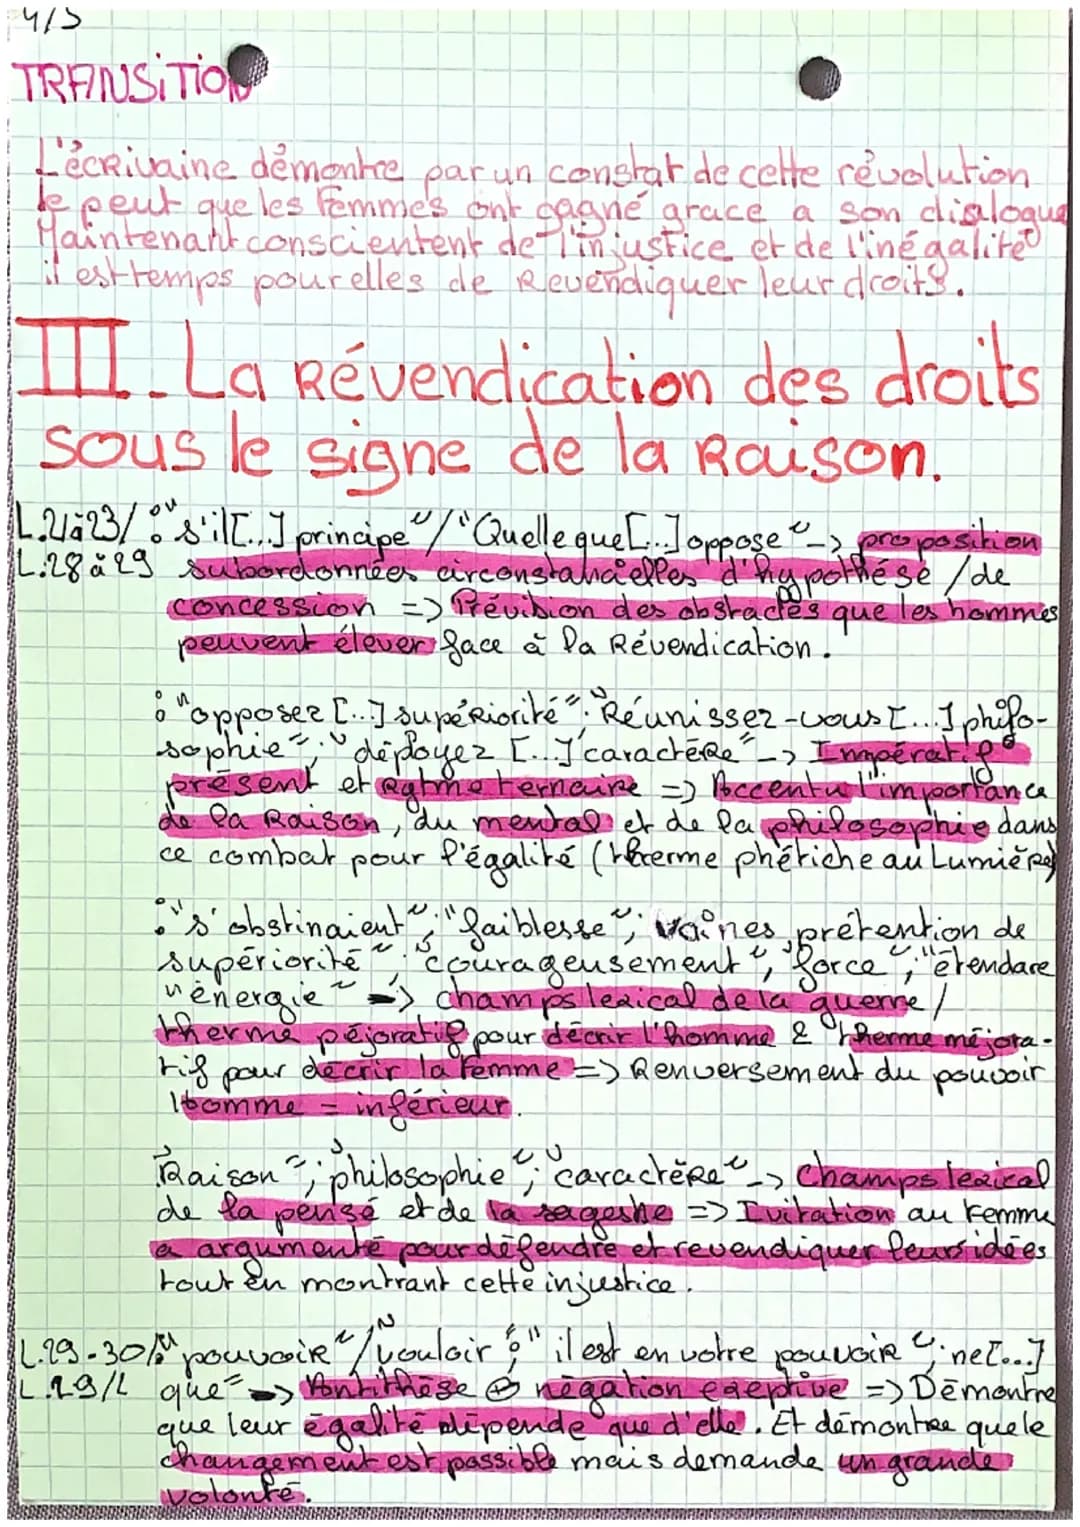 4/5
TRANSiTiON
L'écrivaine démontre par un constat de cette révolution
le peut que les femmes ont gagné grace a son dialogue
Maintenant conscientent de l'injustice et de l'inégalité
il est temps pour elles de Revendiquer leur droits.
III_La Révendication des droits
sous le signe de la Raison.
L.21à23/ : "s'il[...] principe"/"Quelle que[...] oppose" -> proposition
L.28 à 29 subordonnées circonstancielles d'hypothése /de
concession => Prévision des obstacles que les hommes
peuvent élever face à la Révendication.
: "opposez [...] supériorité"; "Réunissez-vous [...] philo-
sophie"; "déployez [...] caractéRe" -> Impératif
présent et Rytme ternaire => Accentu l'importance
de la Raison, du mental et de la philosophie dans
ce combat pour l'égalité (therme phétiche au Lumières)
: "s'obstinaient"; "faiblesse"; vaines prétention de
supériorité"; "courageusement", "force"; "étendare
"énergie" -> champs lexical de la guerre /
therme péjoratif pour décrir l'homme & therme méjora-
tif pour décrir la femme => Renversement du pouvoir
Homme = inférieur.
"Raison"; "philosophie"; "caractéRe" -> Champs lexical
de la pensé et de la sagesse => Ivitation au femme
a argumenté pour défendre et revendiquer leurs idées
tout en montrant cette injustice.
L.29-30/: "pouvoir"/"vouloir"; "il est en votre pouvoir"; "ne[...]
L.29/L que" -> Antithèse négation exeptive => Démontre
que leur égalité dépende que d'elle. Et démontre que le
changement est possible mais demande un grande
volonté.